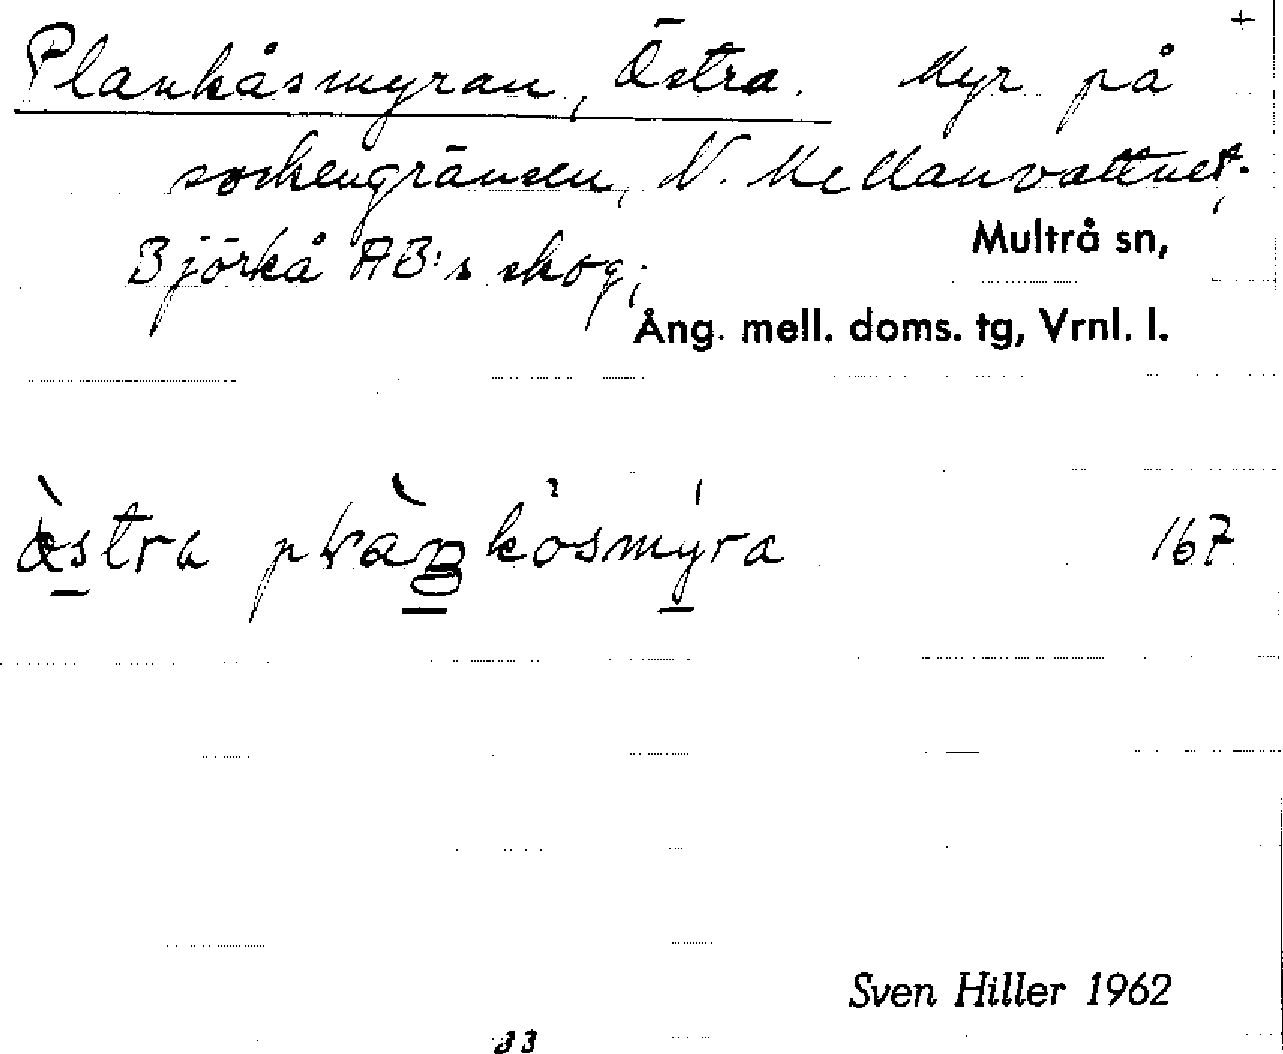 +
Plankåsmyran, Östra. Myr på
sockengränsen, N. Mellanvattnet.
Björkå AB:s skog;
Multrå sn,
Ång. mell. doms. tg, Vrnl. l.
167
Sven Hiller 1962
33